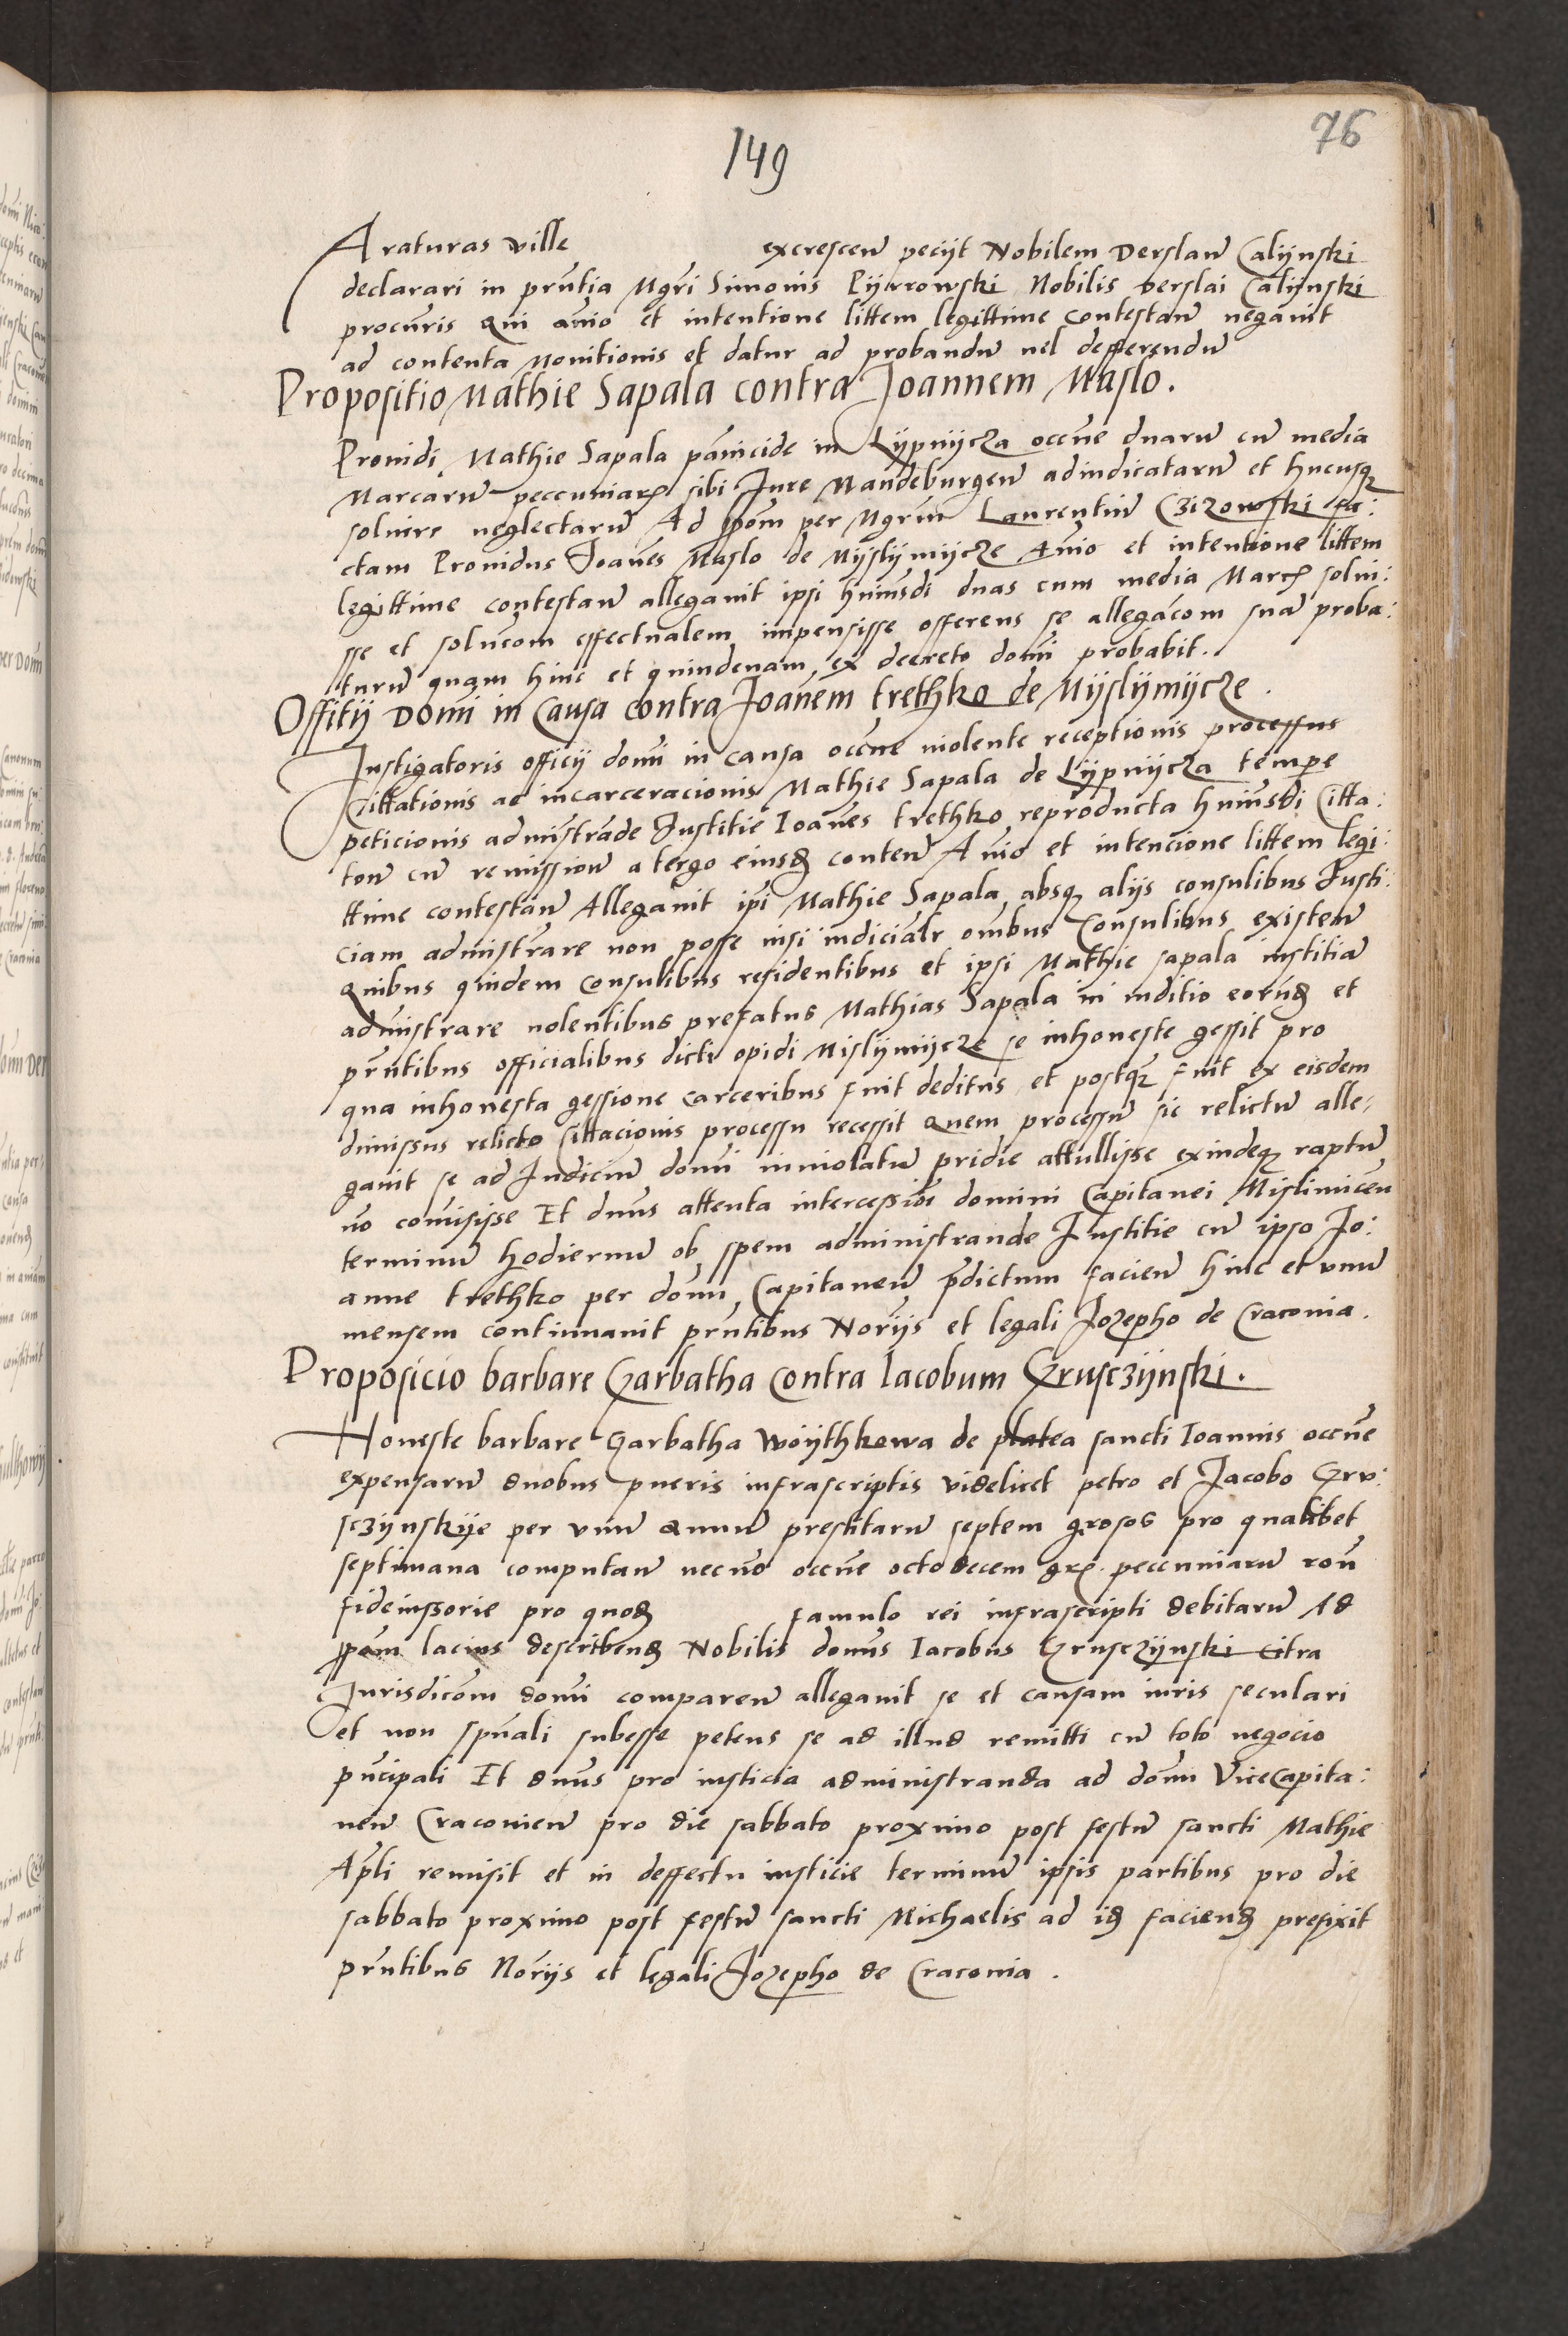 149
76
Araturas ville excrescen̄ pecijt Nobilem Derslaū Calijnski
declarari in prn̄tia Mgr̄i Simonis Pijrrowski Nobilis Derslai Calijnski
procūris Qui aīo et intentione littem legittime contestan̄ negauit
ad contenta Monitionis et datur ad probandū uel defferendū
Propositio Mathie Sapala contra Joannem Maslo.
Prouidi Mathie Sapala pānicide in Lijpnijcza occn̄e duarū cū media
Marcarū peccuniarꝝ sibi Jure Mandeburgen̄ adiudicatarū et hucusqꝫ
soluere neglectarū Ad ꝓpōm per Mgrm̄ Laurentiū Czizowski fa:
ctam Prouidus Joan̄es Maslo de Mijslijmijcze Aīo et intentione littem
legittime contestan̄ allegauit ipsi huiusdi duas cum media Marcꝭ solui:
sse et solucōm effectualem impensisse offerens se allegacōm suā proba:
turū quam hinc et quindenam ex decreto domi probabit.
Offitij Domi in Causa contra Joan̄em trethko de Mijslijmijcze.
Instigatoris officij domi in causa occn̄e violente receptionis processus
Cittationis ac incarceracionis Mathie Sapala de Lijpnijcza tempe
peticionis admistrāde Justitie Ioan̄es trethko reproducta huiusdi Citta:
ton̄ cū remission̄ a tergo eiusđ conten̄ Aīo et intencione littem legi:
ttime contestan̄ Allegauit ip̄i Mathie Sapala absqꝫ alijs consulibus Justi:
ciam admistrāre non posse nisi iudicialr̄ om̄bus Consulibus existen̄
Quibus quidem Consulibus residentibus et ipsi Mathie sapala iustitiā
admistrare uolentibus prefatus Mathias Sapala in iuditio eorūđ et
prn̄tibus officialibus dicti opidi Mislijmijcze se inhoneste gessit pro
qua inhonesta gessione carceribus fuit deditus et postqꝫ fuit ex eisdem
dimissus relicto Cittacionis processu recessit Quem processū sic relictū alle:
gauit se ad Judiciū domi inuiolatū pridie attullisse exindeqꝫ raptū
nō comisisse Et dnūs attenta intercessiōe domini Capitanei Mislimicen̄
terminū hodiernū ob spem administrande Justitie cū ipso Jo:
anne trethko per dom̄ Capitaneū p̄dictum facien̄ hinc et vnū
mensem continuauit prn̄tibus Nor̄ijs et legali Jozepho de Cracouia.
Proposicio barbare Garbatha contra Iacobum Grusczijnski.
Honeste barbare Garbatha Woijthkowa de platea sancti Ioannis occn̄e
expensarū duobus pueris infrascriptis videlicet petro et Jacobo Gru:
sczijnskije per vnū annū prestitarū septem grosos pro qualibet
septimana computan̄ necnō occn̄e octodecem grꝭ. peccuniarū ron̄
fideiussorie pro quođ famulo rei infrascripti debitarū Ad
ꝓpōm lacius describenđ Nobilis domūs Iacobus Grusczijnski citra
Jurisdicōm domi comparen̄ allegauit se et causam iuris seculari
et non spūali subesse petens se ad illud remitti cū toto negocio
pn̄cipali Et dnūs pro iusticia administranda ad dom̄ ViceCapita:
neū Cracouien̄ pro die sabbato proximo post festū sancti Mathie
Ap̄li remisit et in deffectu iusticie terminū ipsis partibus pro die
sabbato proximo post festū sancti Michaelis ad iđ facienđ prefixit
prn̄tibus Nor̄ijs et legali Jozepho de Cracouia.